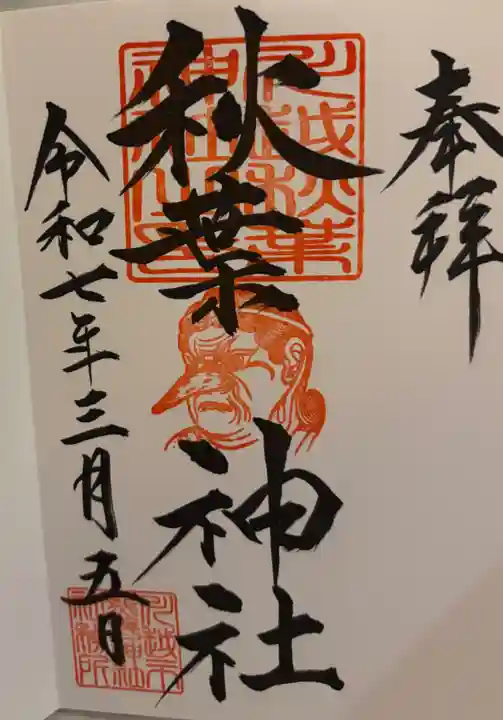 奉拝
秋葉神社
令和七年三月五日